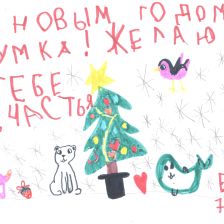 НОВЫМ ГОДОМ
УМКА! ЖЕЛАЮ
ТЕБЕ
СЧАСТЬЯ